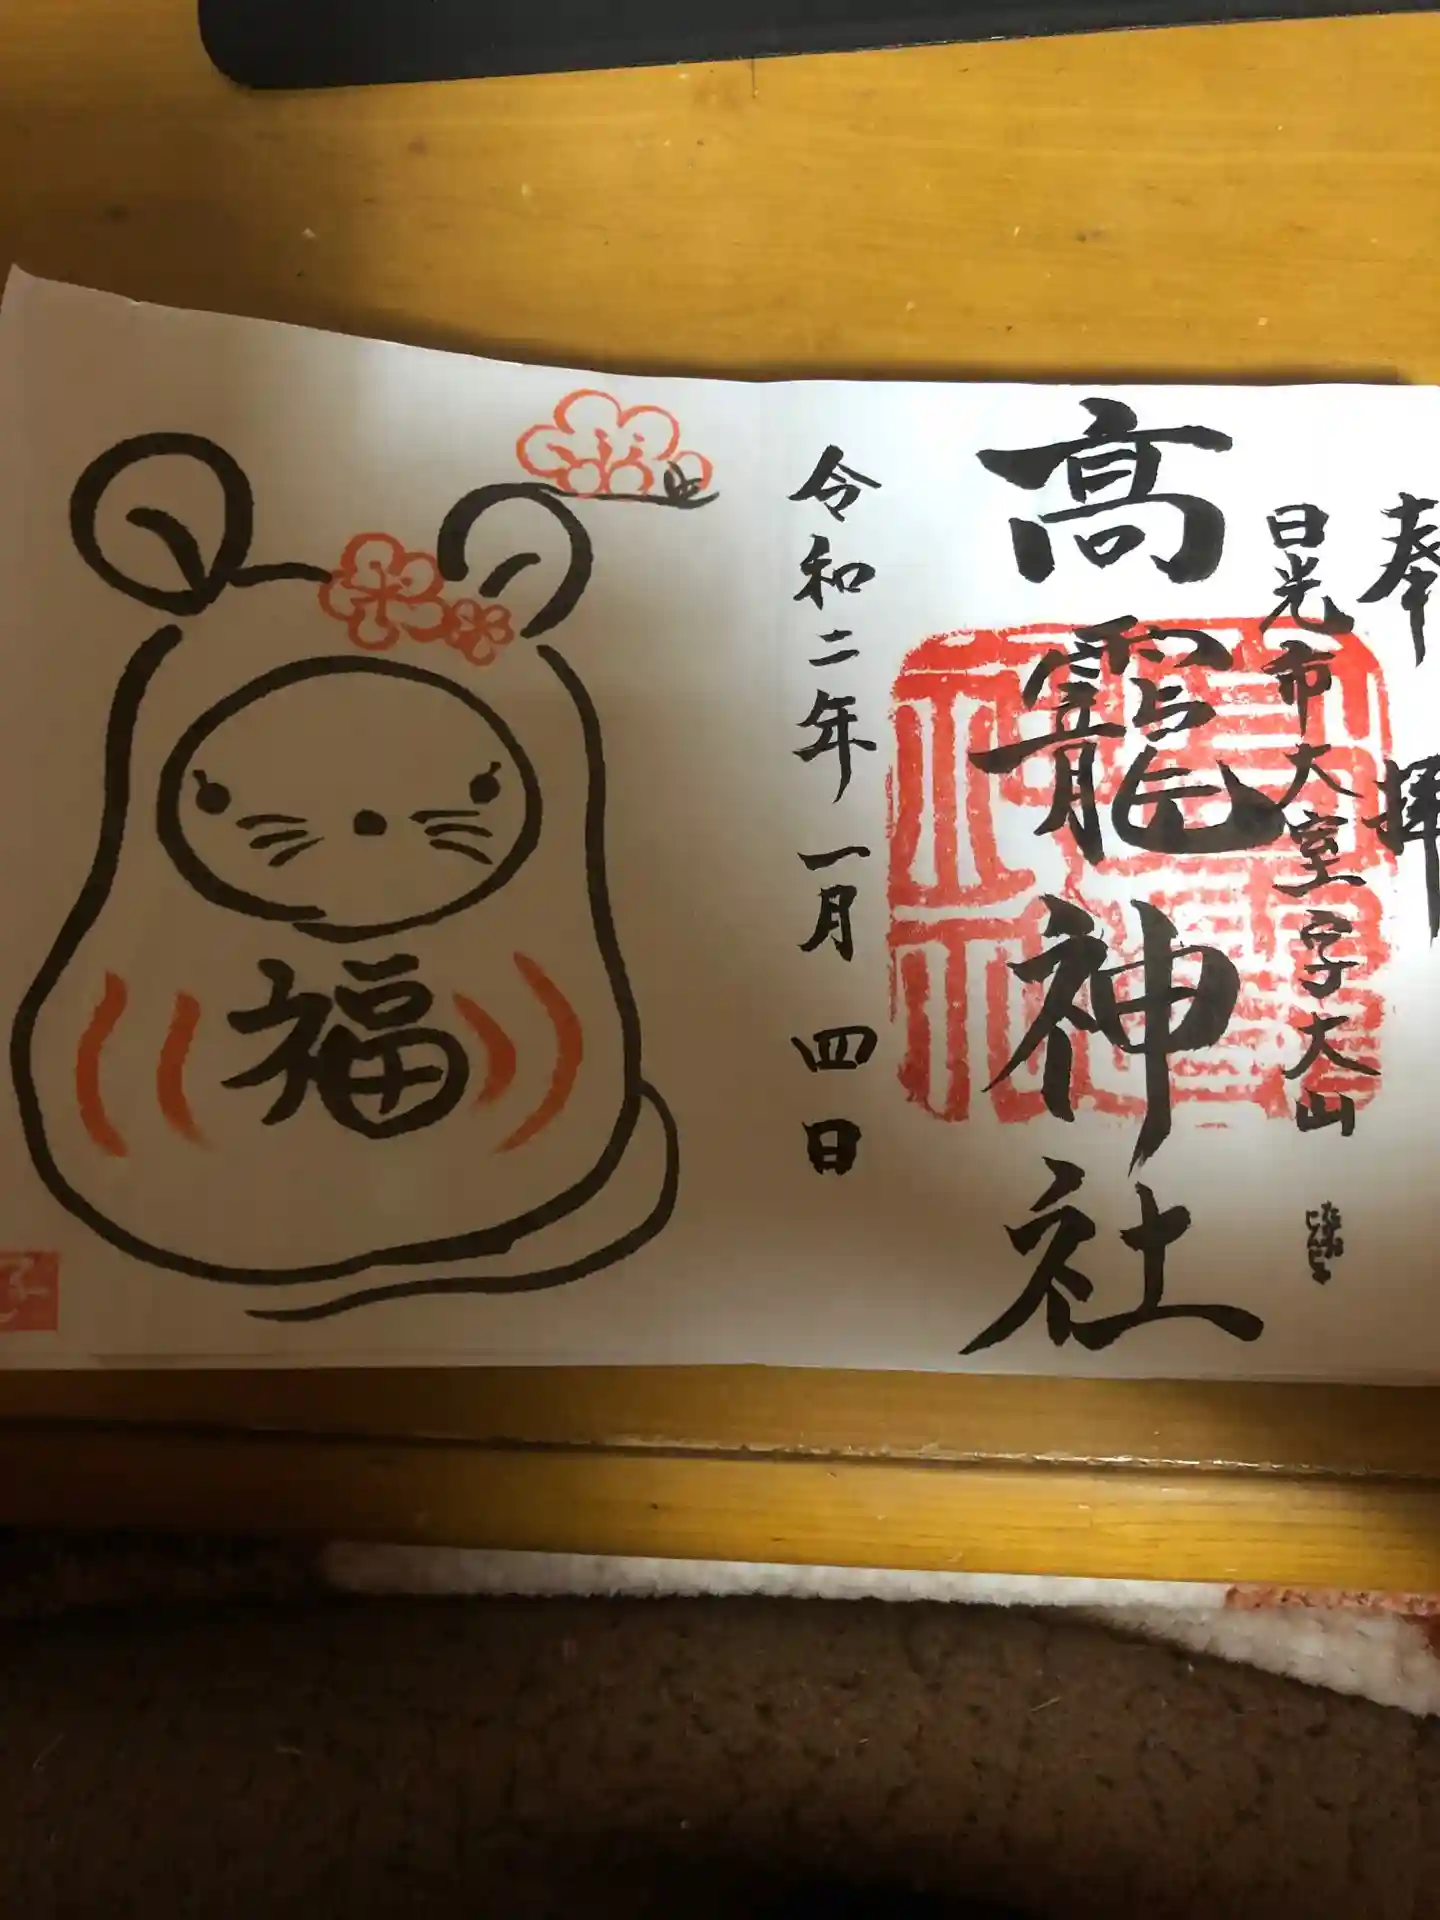 奉拝
日光市大室字大山
高龗神社
令和二年一月四日
福